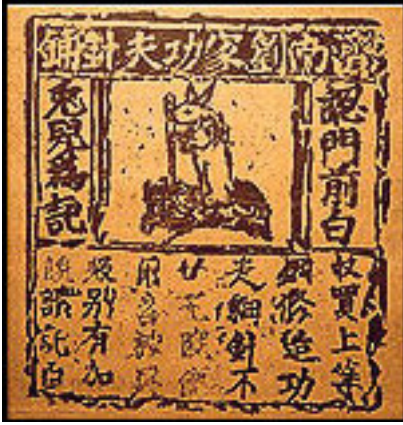 濟南劉家功夫針鋪
認門前白
兔兒為記
收買上等
鋼條造功
夫細針不
別有加
記白